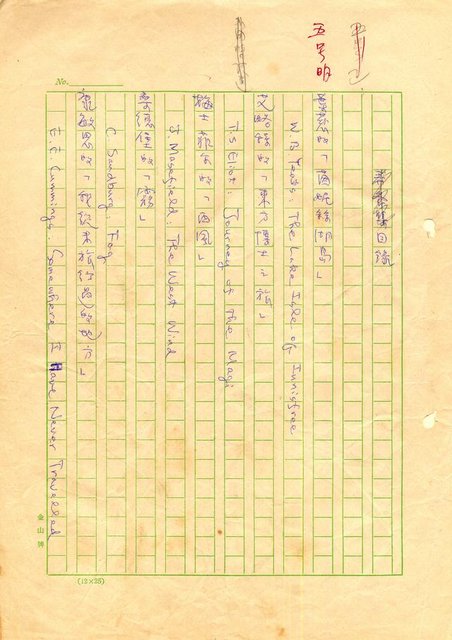 五号明
No.
目錄
葉慈的「茵妮絲湖島」
W.B. Yeats: The Lake Isle of Innisfree
艾略特的「東方博士之旅」
T.S. Eliot: Journey of the Magi
梅士菲爾的「西風」
J. Masefield: The West Wind
桑德堡的「霧」
C. Sandburg: Fog
康敏思的「我從未旅經過的地方」
E.E. Cummings: Somewhere I Have Never Travelled
金山牌
(12×25)